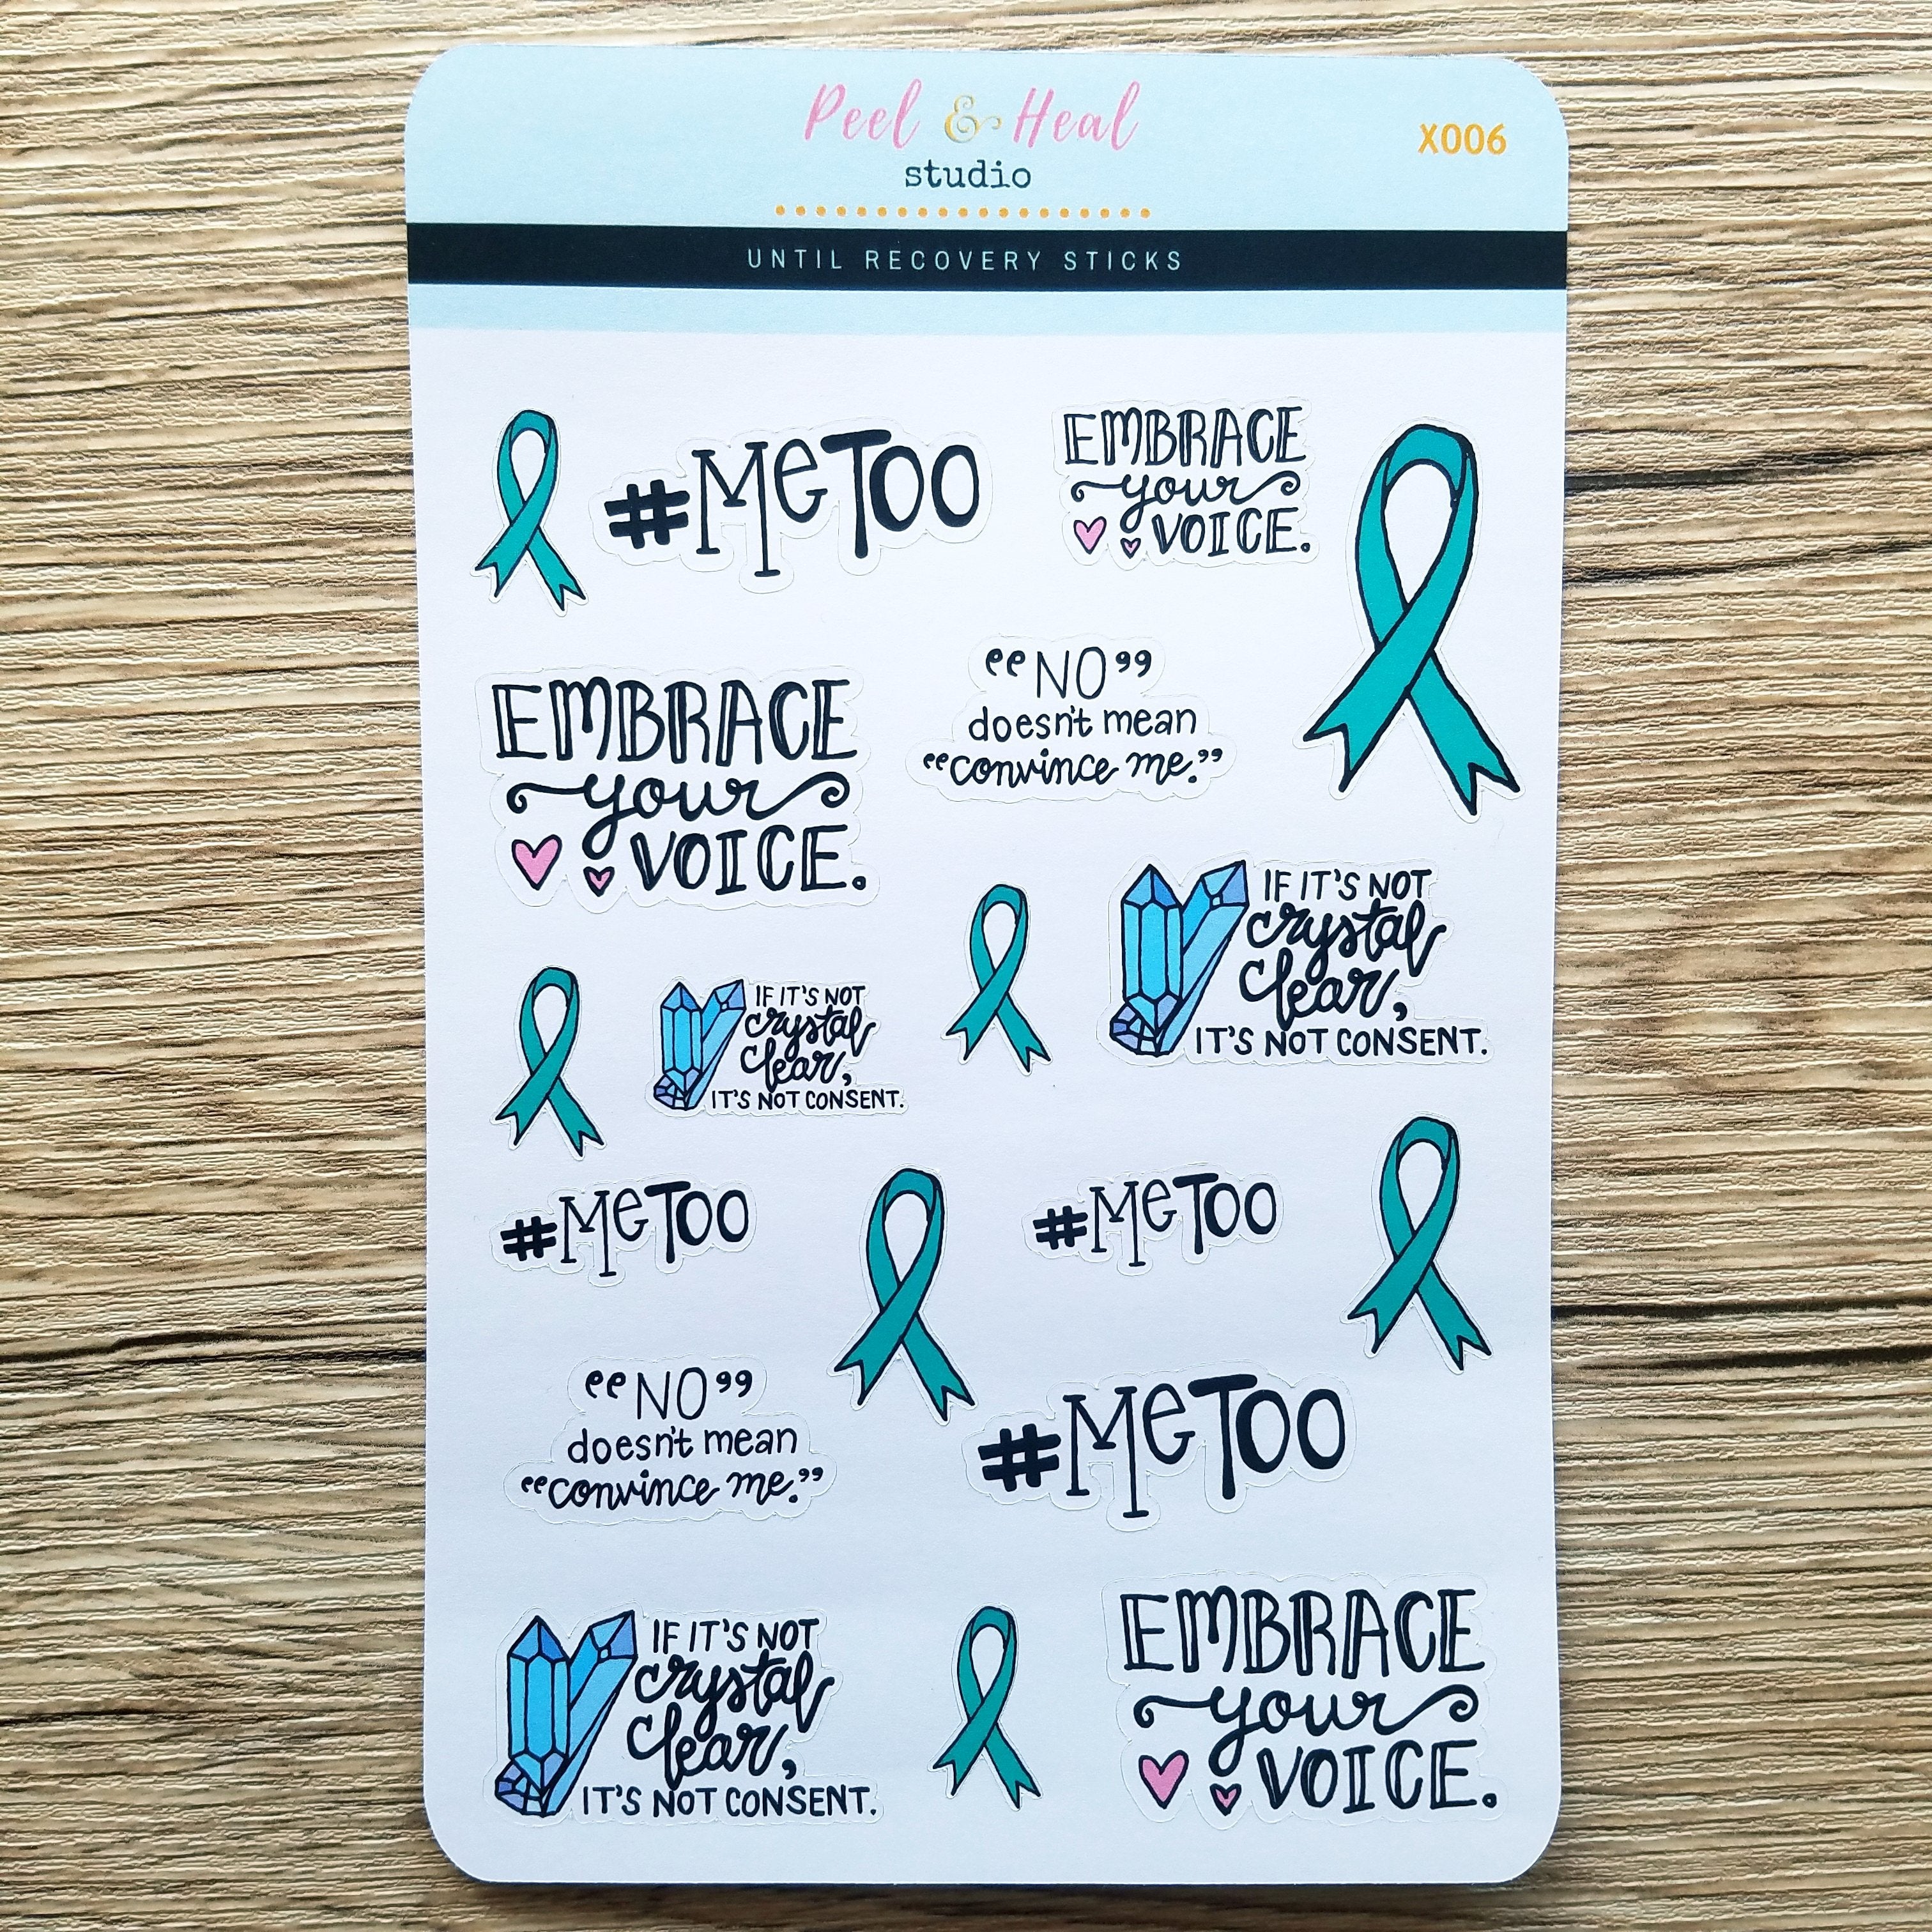 Peel & Heal
studio
X006
UNTIL RECOVERY STICKS
#METOO
EMBRACE
your
VOICE.
EMBRACE
your
VOICE.
“NO”
doesn't mean
“convince me.”
IF IT'S NOT
crystal
clear,
IT'S NOT CONSENT.
IF IT'S NOT
crystal
clear,
IT'S NOT CONSENT.
#METOO
#METOO
“NO”
doesn't mean
“convince me.”
#METOO
IF IT'S NOT
crystal
clear,
IT'S NOT CONSENT.
EMBRACE
your
VOICE.